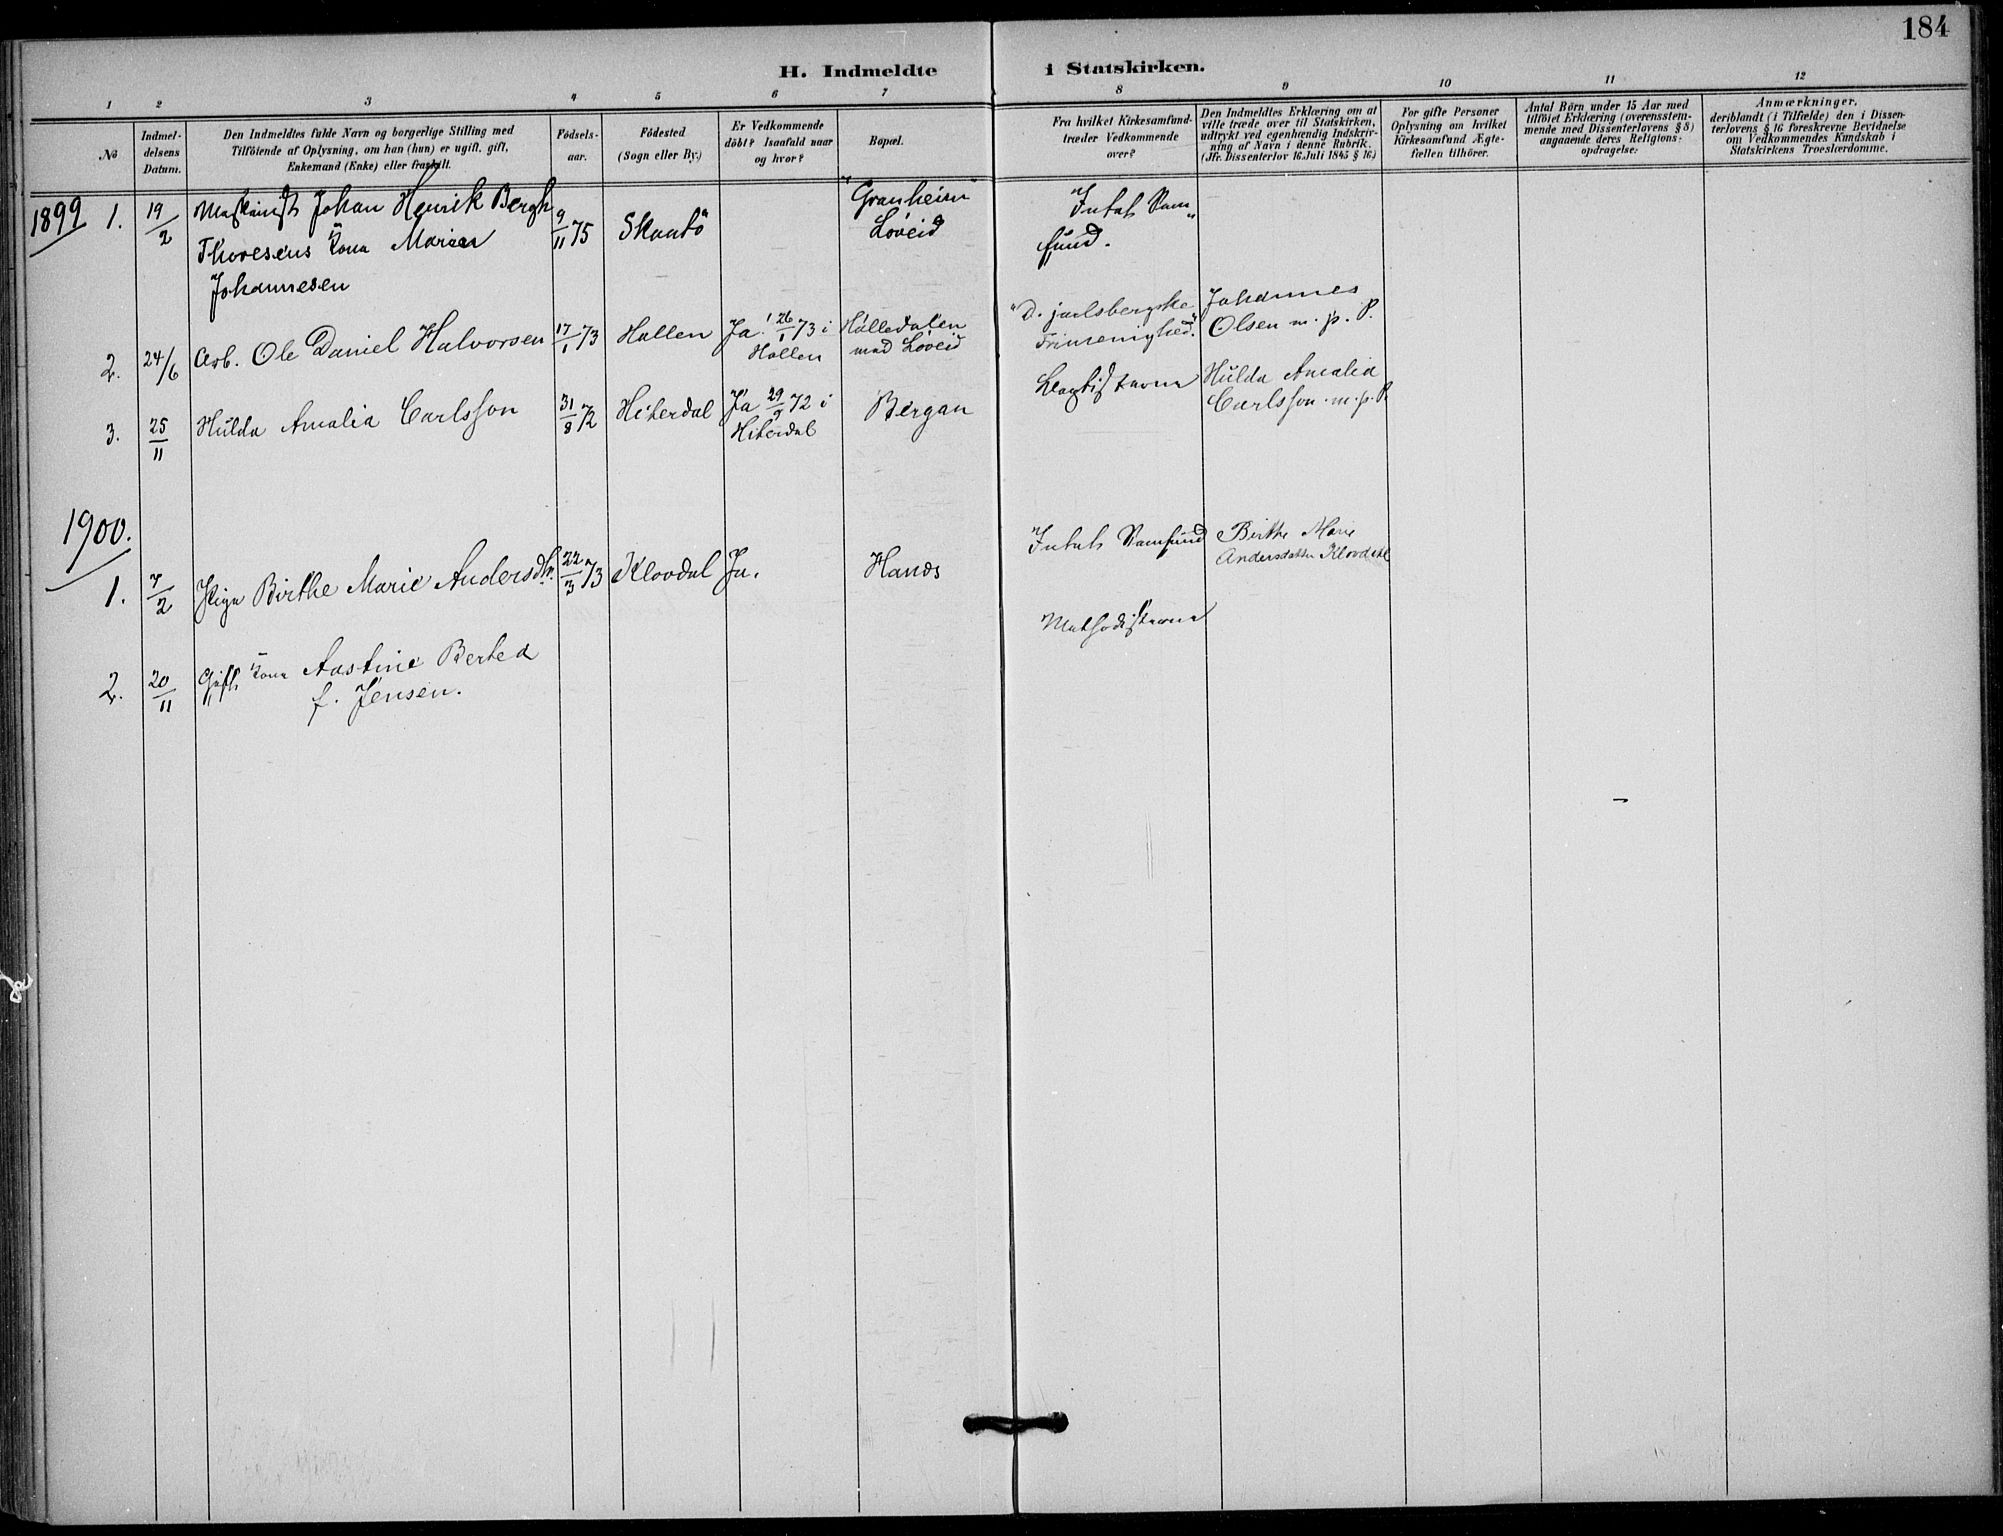 184
H. Indmeldte i Statskirken.
1 2 3 4 5 6 7 8 9 10 11 12
No
Indmel-
delsens
Datum.
Den Indmeldtes fulde Navn og borgerlige Stilling med
Tilföiende af Oplysning, om han (hun) er ugift, gift,
Enkemand (Enke) eller fraskilt.
Födsels-
aar.
Födested
(Sogn eller By.)
Er Vedkommende
döbt? Isaafald naar
og hvor?
Bopæl.
Fra hvilket Kirkesamfund-
træder Vedkommende
over?
Den Indmeldtes Erklæring om at
ville træde over til Statskirken,
udtrykt ved egenhændig Indskriv-
ning af Navn i denne Rubrik.
(Jfr. Dissenterlov 16. Juli 1845 § 16.)
For gifte Personer
Oplysning om hvilket
Kirkesamfund Ægte-
fællen tilhörer.
Antal Börn under 15 Aar med
tilföiet Erklæring (overensstem-
mende med Dissenterlovens § 8)
angaaende deres Religions-
opdragelse.
Anmærkninger,
deriblandt (i Tilfælde) den i Dissen-
terlovens § 16 foreskrevne Bevidnelse
om Vedkommendes Kundskab i
Statskirkens Troeslærdomme.
1899 1. 19/2 Maskinist Johan Henrik Bergh
Thoresens Kona Maria
Johannesen
9/11 75 Skaatö
"Granheim"
Löveid
Intet Sam-
fund.
2. 24/6 Arb. Ole Daniel Halvorsen 17/1 73 Hollen Ja 26/1 73 i
Hollen
Holledalen
med Löveid
"D. jarlsbergske
Frimenighed"
Johannes
Olsen m. p. P.
3. 25/11 Hulda Amalia Carlsson 31/8 72 Hiterdal Ja 29/9 72 i
Hiterdal
Bergan
Baptisterne
Hulda Amalia
Carlsson m. p. P.
1900.
1. 7/2 Pige Birthe Marie Andersdtr. 22/3 73 Klovdal Ja. Hanes
Intet Samfund
Birthe Marie
Andersdatter Klovdal
2. 20/11 Gift Kona Aastine Bertea
f. Jensen.
Methodisterne